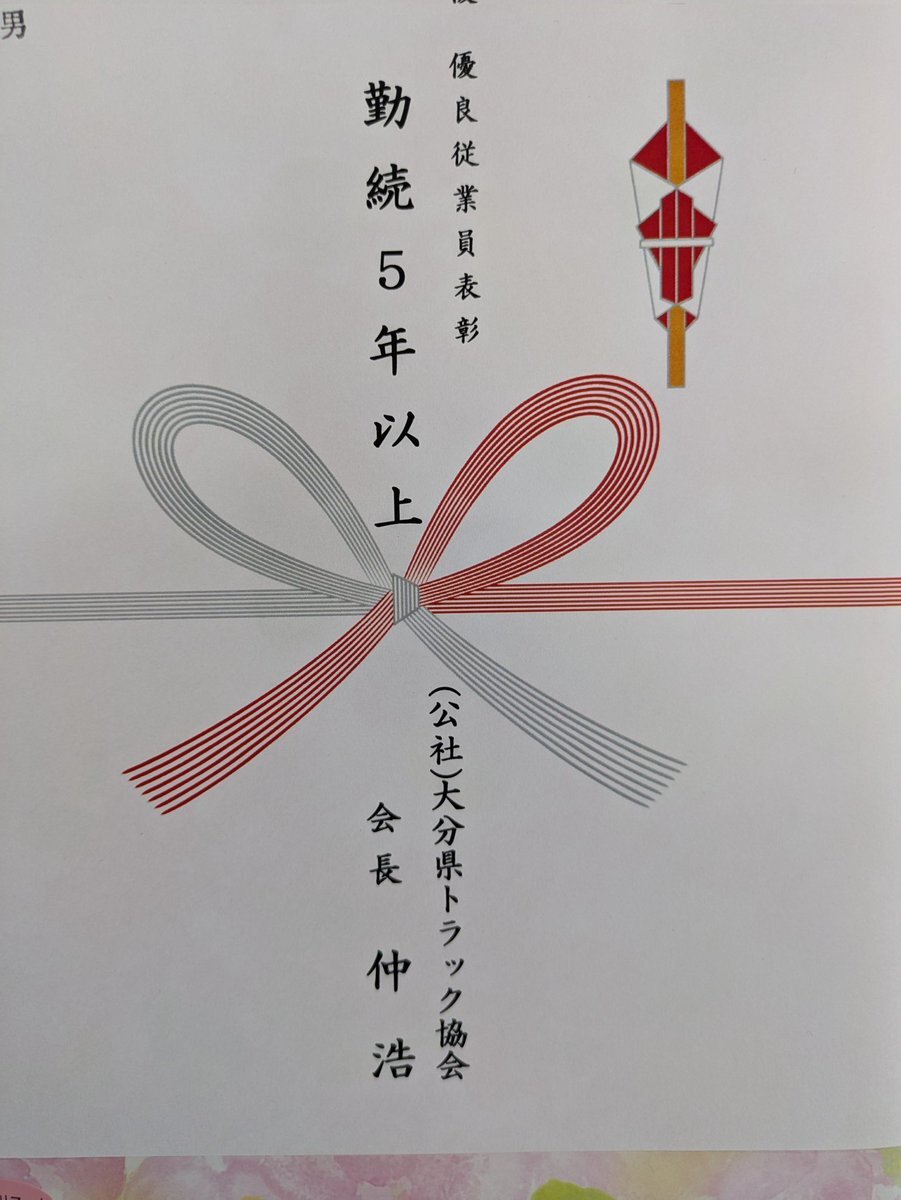 優良従業員表彰
勤続5年以上
(公社)大分県トラック協会
会長 仲 浩
男